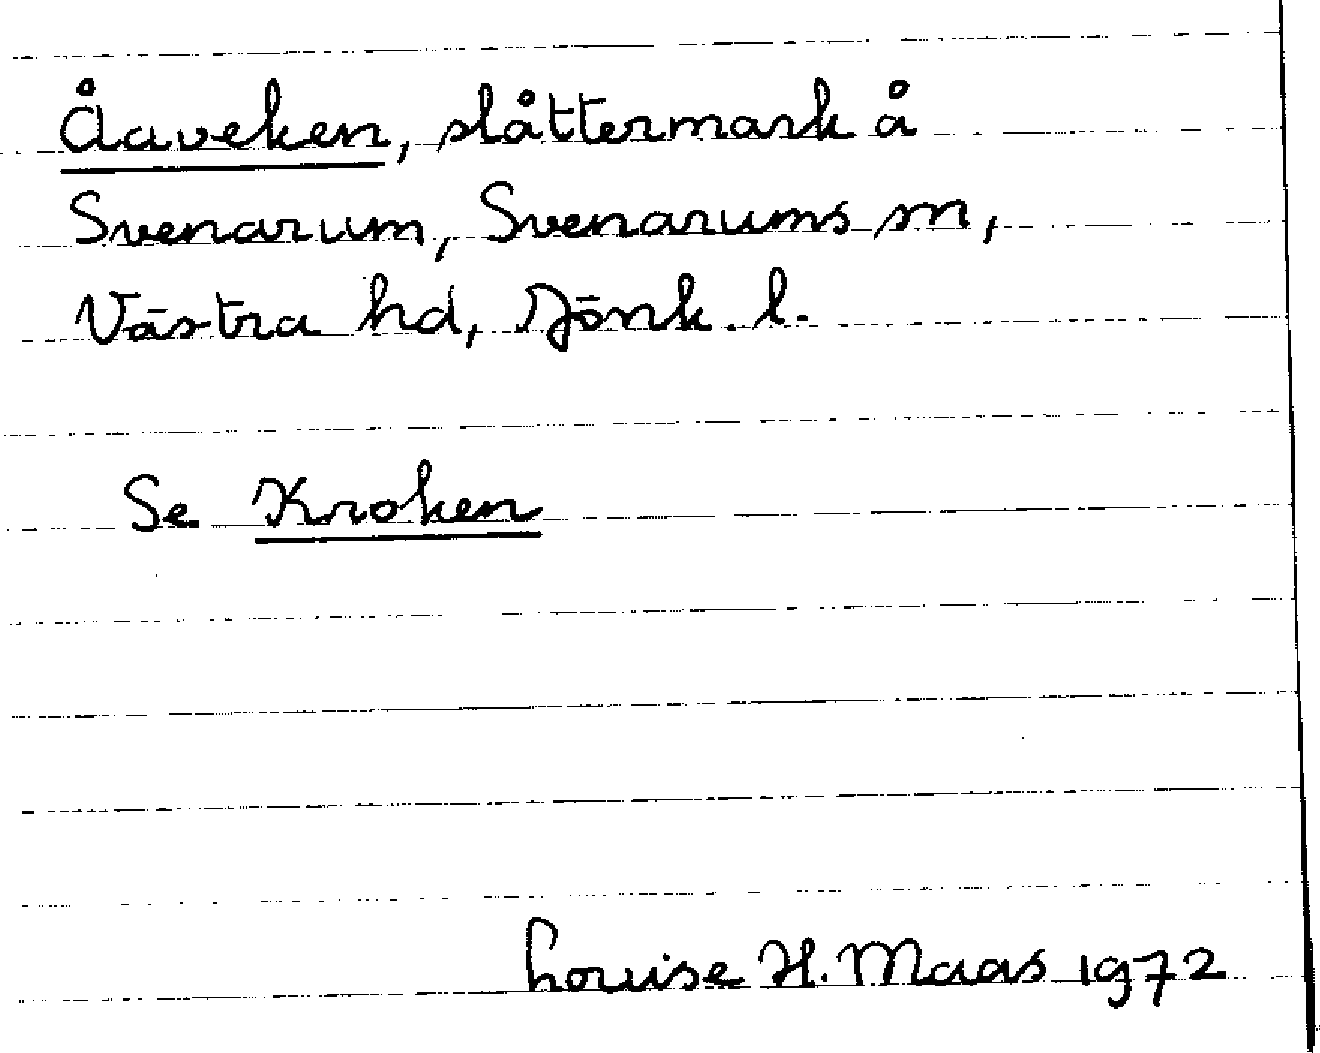 Åaveken, slåttermark å
Svenarum, Svenarums sn,
Västra hd, Jönk. l.
Se Kroken
Louise H. Maas 1972